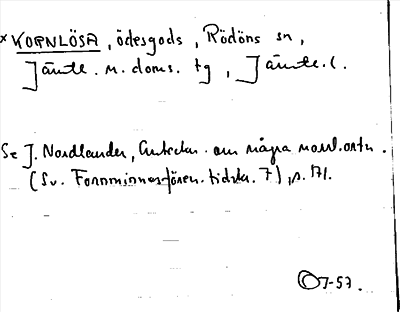 × KORNLÖSA, ödesgods, Rödöns sn,
Jämte. n. doms. tg, Jämte. l.
Se J. Nordlander, Anteckn. om några norrl. ortn.
(Sv. Fornminnesfören. tidskr. 7), s. 171.
J-57.